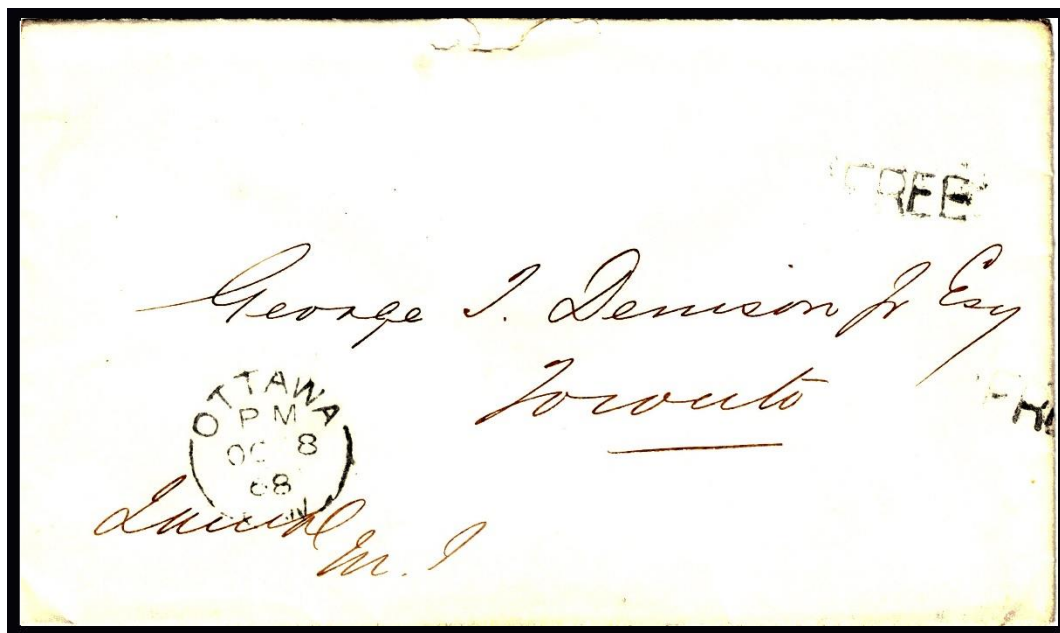 FREE
George T. Denison Jr Esq
Toronto
OTTAWA
PM
OC 8
68
M. P